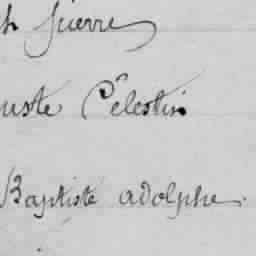 h Guerre
uste Célestin
Baptiste adolphe.